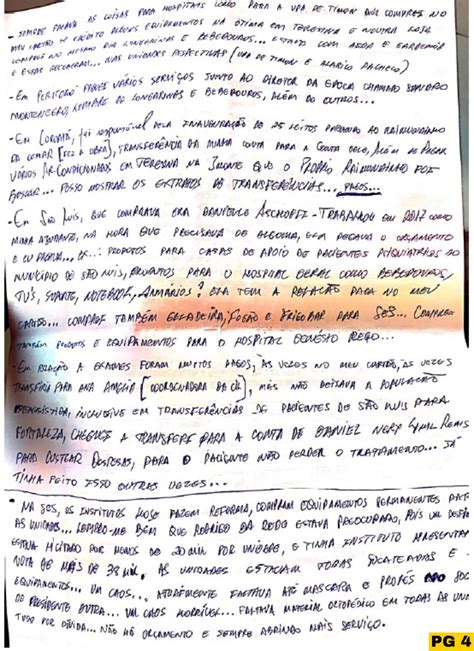 - SEMPRE PAGAVA AS COISAS PARA HOSPITAIS COMO PARA A UPA DE TIMON QUE COMPREI NO
MEU CARTÃO DE CRÉDITO VÁRIOS EQUIPAMENTOS NA ÓTIMA EM TERESINA E NOUTRA LOJA
COMPREI NO MESMO DIA LONGARINAS E BEBEDOUROS... ESTAVA COM
E ESSAS NAS UNIDADES RESPECTIVAS (UPA DE TIMON E ALARICO PACHECO)
- EM PERITORÓ PAGUEI VÁRIOS SERVIÇOS JUNTO AO DIRETOR DA ÉPOCA CHAMADO SANDRO
MONTENEGRO, DE LONGARINAS E BEBEDOUROS, ALÉM DO OUTROS...
- EM COROATÁ, FUI RESPONSÁVEL PELA INAUGURAÇÃO DE 25 LEITOS PAGANDO AO RAIMUNDINHO
[FEZ A OBRA], TRANSFERÊNCIA DA MINHA CONTA PARA A CONTA DELE, ALÉM DE PAGAR
VÁRIOS AR-CONDICIONADOS EM TERESINA NA QUE O PRÓPRIO RAIMUNDINHO FOI
BUSCAR... POSSO MOSTRAR OS EXTRATOS DE TRANSFERÊNCIAS... PAGOS...
- EM SÃO LUIS, QUE COMPRAVA ERA DANIELLE - TRABALHOU EM 2017 COMO
MINHA AJUDANTE, NA HORA QUE PRECISAVA DE ALGUMA, ELA PEGAVA O ORÇAMENTO
E EU PAGAVA... PRODUTOS PARA CASAS DE APOIO DE PACIENTES PSIQUIÁTRICOS DO
MUNICÍPIO DE SÃO LUIS, PARA O HOSPITAL GERAL COMO BEBEDOUROS,
TV'S, SUPORTE, NOTEBOOK, ARMÁRIOS? ELA TEM A RELAÇÃO PAGO NO MEU
CARTÃO... COMPREI TAMBÉM GELADEIRA, FOGÃO E FRIGOBAR PARA SES... COMPREI
TAMBÉM PRODUTOS E EQUIPAMENTOS PARA O HOSPITAL GENÉSIO REGO...
- EM RELAÇÃO A EXAMES FORAM MUITOS PAGOS, ÀS VEZES NO MEU CARTÃO, ÀS VEZES
TRANSFERIA PARA ANA [COORDENADORA DA], MAS NÃO DEIXAVA A POPULAÇÃO
INCLUSIVE EM TRANSFERÊNCIAS DE PACIENTES DE SÃO LUIS PARA
FORTALEZA, CHEGUEI A TRANSFERIR PARA A CONTA DE DANIEL NERY
PARA CUSTEAR DESPESAS, PARA O PACIENTE NÃO PERDER O TRATAMENTO... JÁ
TINHA FEITO ISSO OUTRAS VEZES...
• NA SES, OS INSTITUTOS HOJE FAZEM REFORMA, COMPRAM EQUIPAMENTOS PERMANENTES PARA
AS UNIDADES... LEMBRO-ME BEM QUE RODRIGO DA REDE ESTAVA PREOCUPADO, POIS UM
ESTAVA LICITADO POR MENOS DE 20 MIL POR UNIDADE, E TINHA INSTITUTO
NOTA DE MAIS DE 38 MIL. AS UNIDADES ESTAVAM TODAS SUCATEADAS E
EQUIPAMENTOS... UM CAOS... FALTAVA ATÉ MASCARA E
DO PRESIDENTE DUTRA... UM CAOS HORRÍVEL... FALTAVA MATERIAL ORTOPÉDICO EM TODAS AS
TUDO POR DÍVIDA... NÃO HÁ ORÇAMENTO E SEMPRE ABRINDO MAIS SERVIÇO.
PG 4